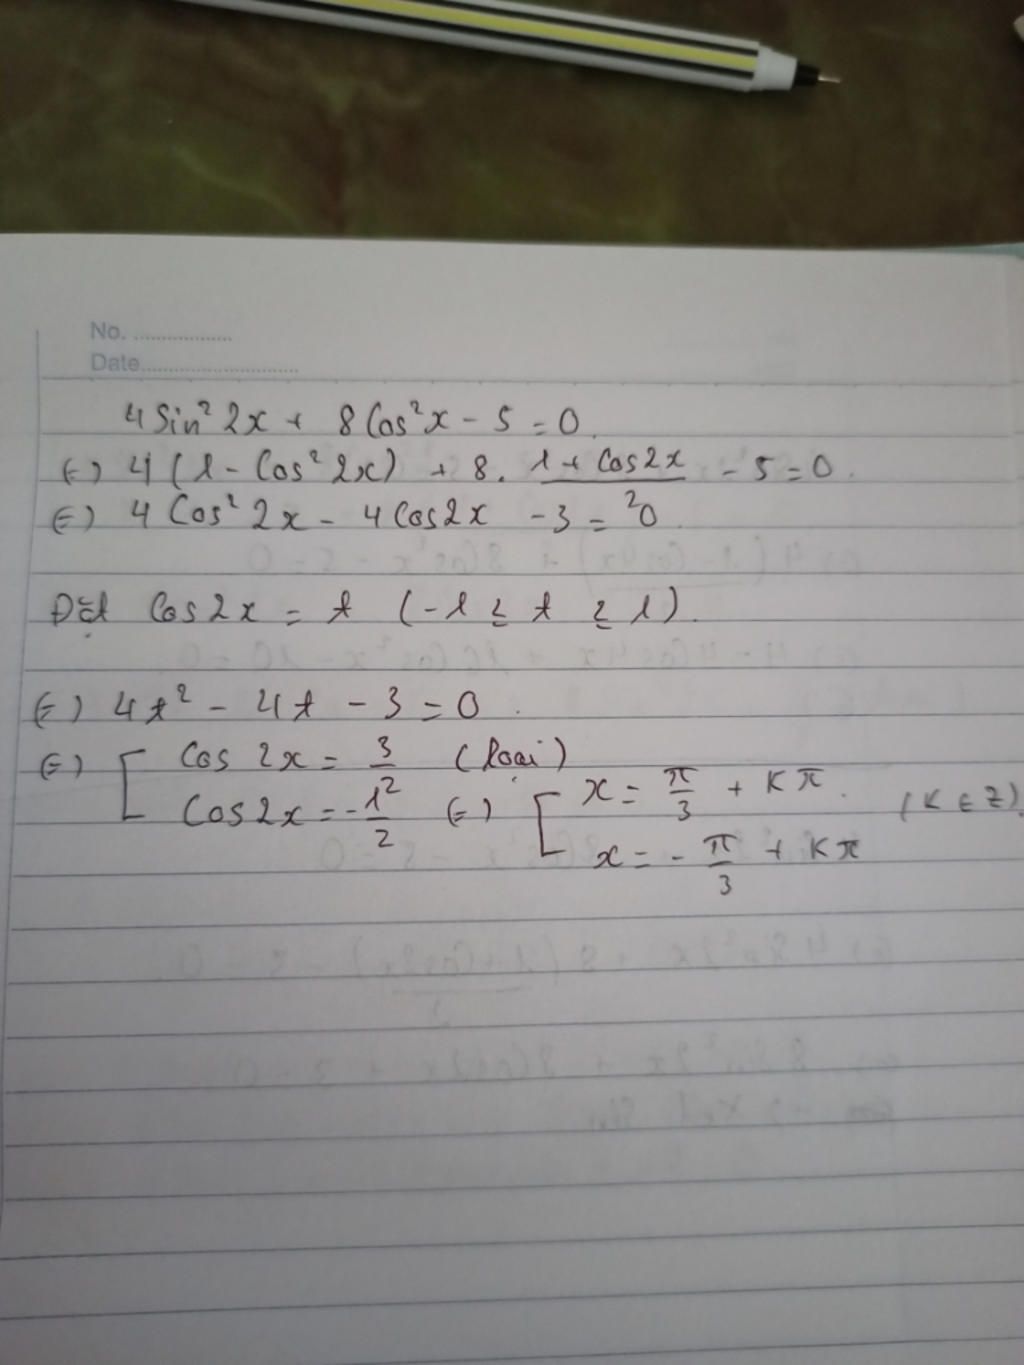 No. ..................
Date.............................
4 Sin² 2x + 8 Cos²x - 5 = 0.
(=) 4 (1 - Cos² 2x) + 8. (1 + Cos2x)/2 - 5 = 0.
(=) 4 Cos² 2x - 4 Cos2x - 3 = 0.
Đặt Cos 2x = t (-1 ≤ t ≥ 1).
(=) 4t² - 4t - 3 = 0.
(=) [ Cos 2x = 3/2 (loại)
Cos2x = -1/2 (=) [ x = π/3 + Kπ. (K ∈ Z)
x = - π/3 + Kπ